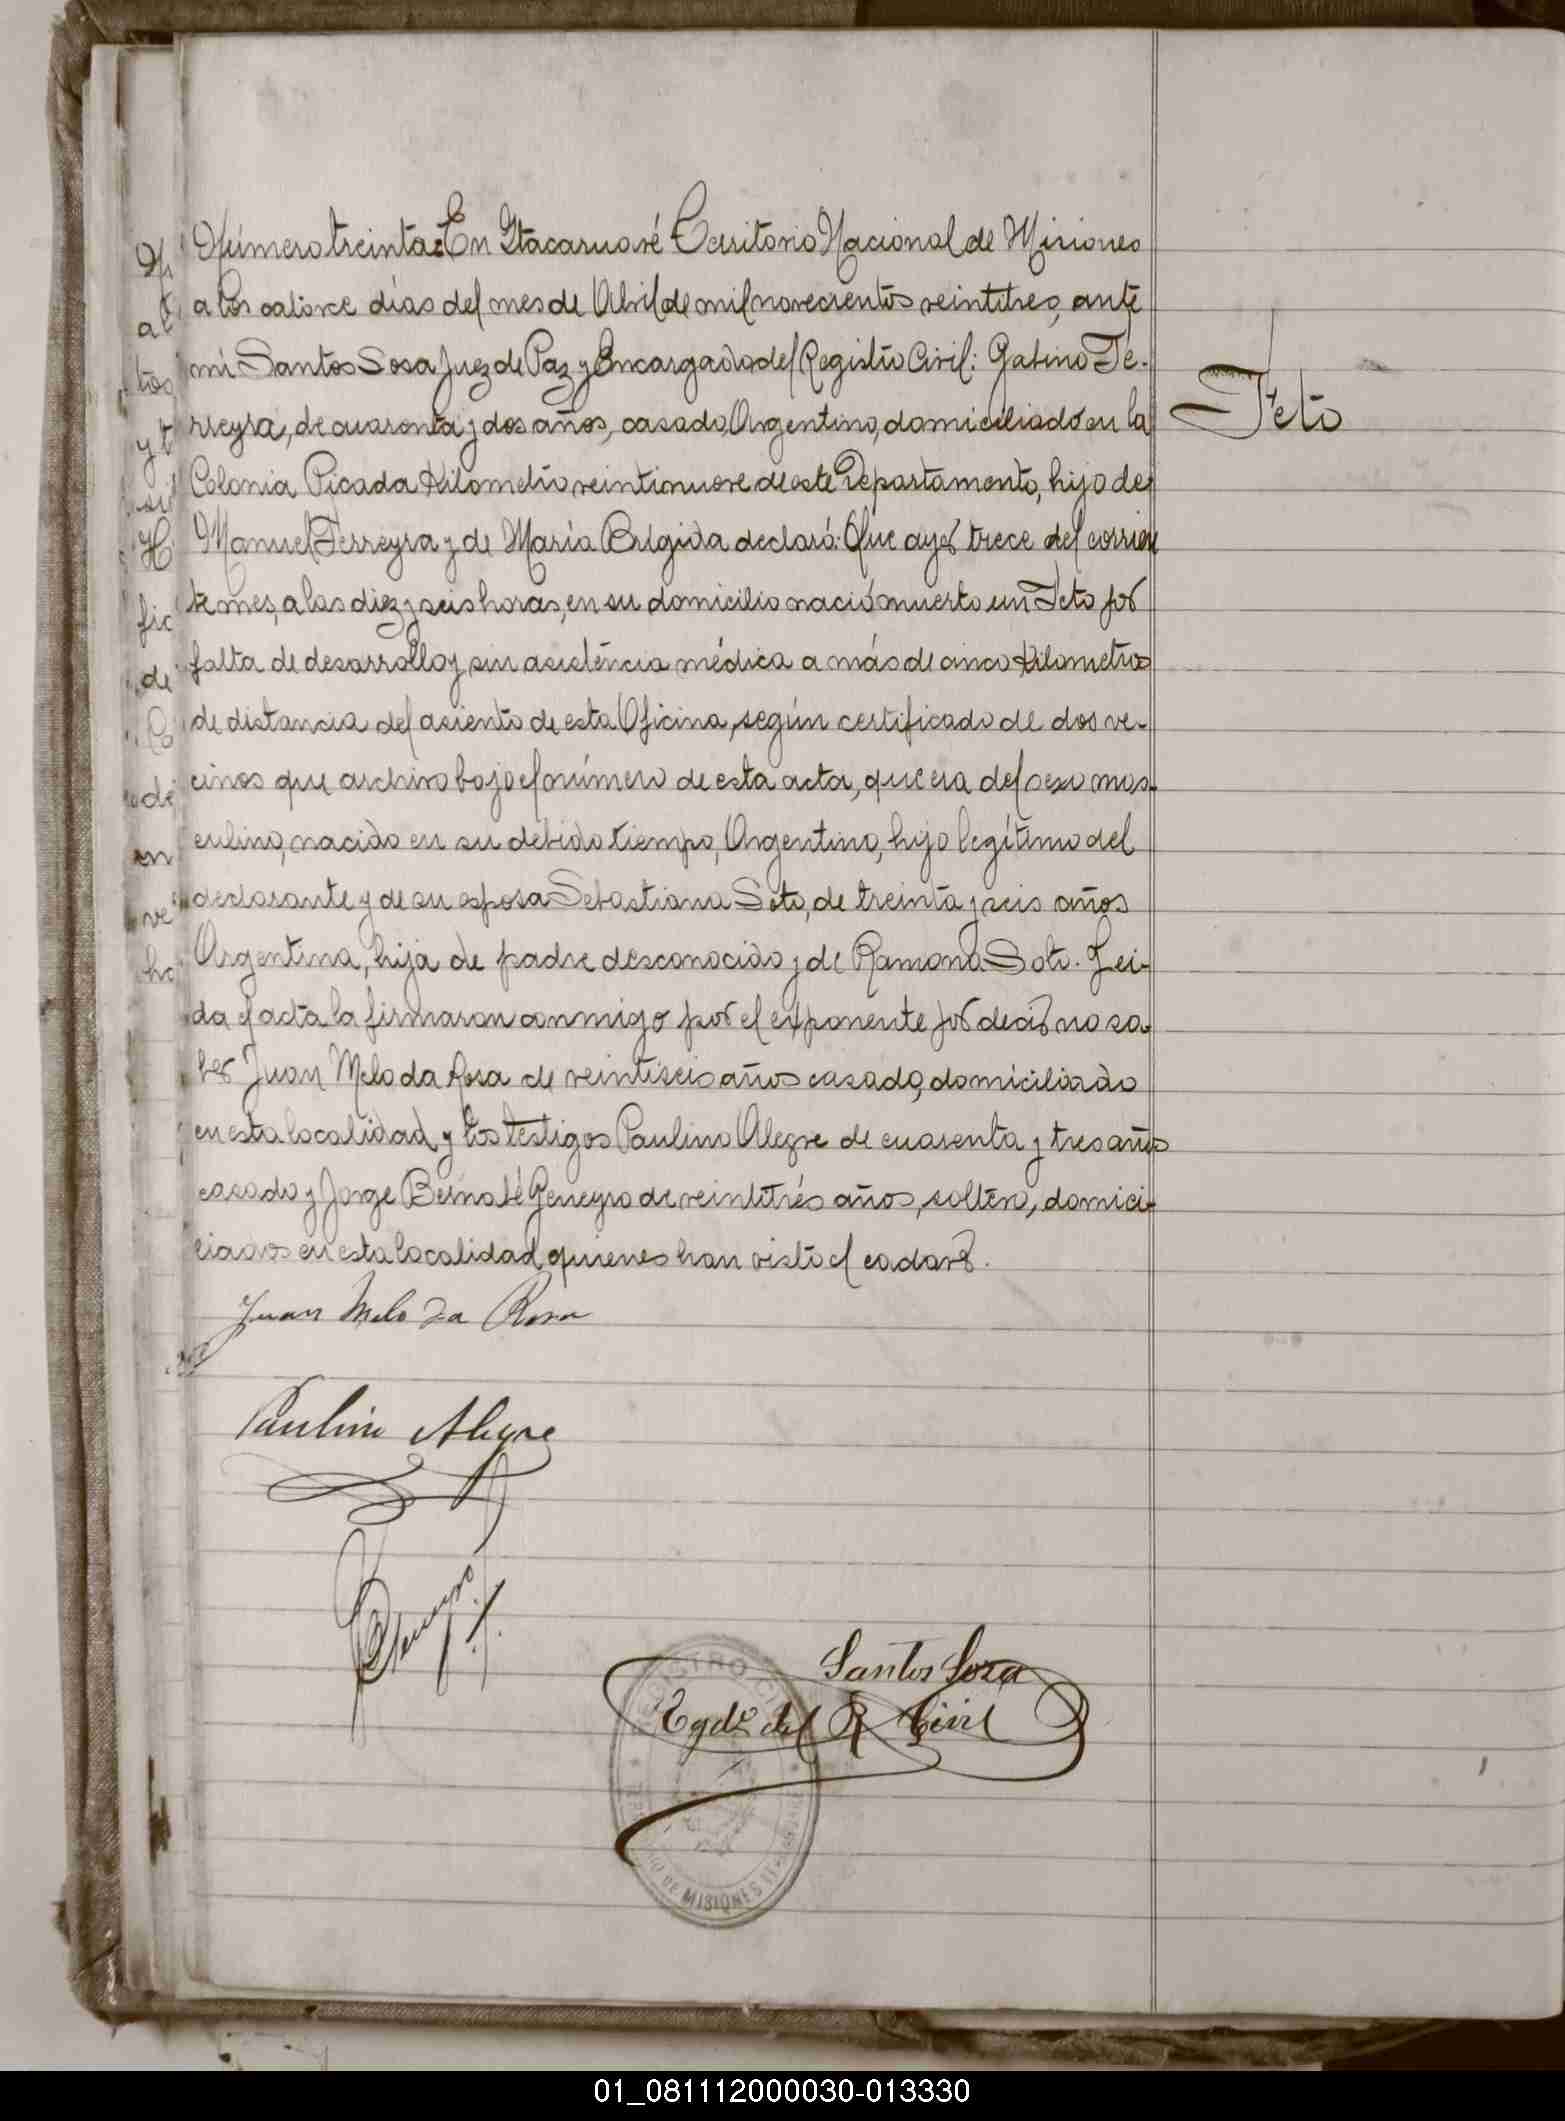 Número treinta: En Itacaruaré Territorio Nacional de Misiones
a los catorce días del mes de Abril de mil novecientos veintitres, ante
mi Santos Sosa Juez de Paz y Encargado del Registro Civil: Gabino Fe-
rreyra, de cuarenta y dos años, casado, Argentino, domiciliado en la
Colonia Picada Kilometro veintinueve de este Departamento, hijo de
Manuel Ferreyra y de María Brígida declaró: Que ayer trece del corrien
te mes, a las diez y seis horas, en su domicilio nació muerto un Feto por
falta de desarrollo y sin asistencia médica a más de cinco Kilometros
de distancia del asiento de esta Oficina, según certificado de dos ve-
cinos que archivo bajo el número de esta acta, que era del sexo mas-
culino, nacido en su debido tiempo, Argentino, hijo legítimo del
declarante y de su esposa Sebastiana Soto, de treinta y seis años
Argentina, hija de padre desconocido y de Ramona Soto. Lei-
da el acta la firmaron conmigo por el exponente por decir no sa-
ber Juan Melo da Rosa de veintiseis años casado, domiciliado
en esta localidad, y los testigos Paulino Alegre de cuarenta y tres años
casado y Jorge Bernabé Geneyro de veintitrés años, soltero, domici-
liados en esta localidad, quienes han visto el cadaver.
Feto
Juan Melo da Rosa
Paulino Alegre
Santos Sosa
Egdo. del R. Civil
REGISTRO CIVIL
DE MISIONES
01_081112000030-013330